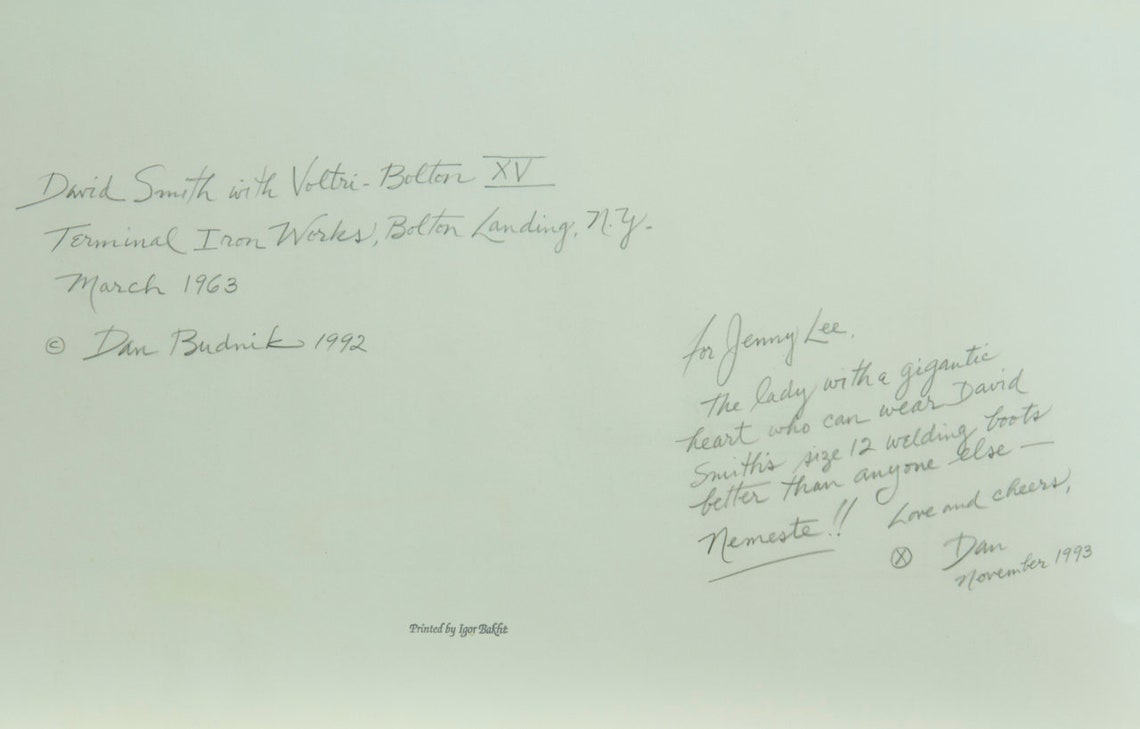 David Smith with Voltri-Bolton XV
Terminal Iron Works, Bolton Landing, N.Y.
March 1963
© Dan Budnik 1992
for Jenny Lee.
The lady with a gigantic
heart who can wear David
Smith's size 12 welding boots
better than anyone else —
Nemeste!! Love and cheers,
Ⓧ Dan
November 1993
Printed by Igor Bakht